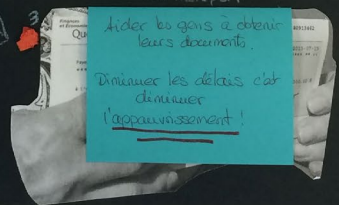 3
Aider les gens à obtenir
leurs documents.
Diminuer les délais c'est
diminuer
l'appauvrissement !